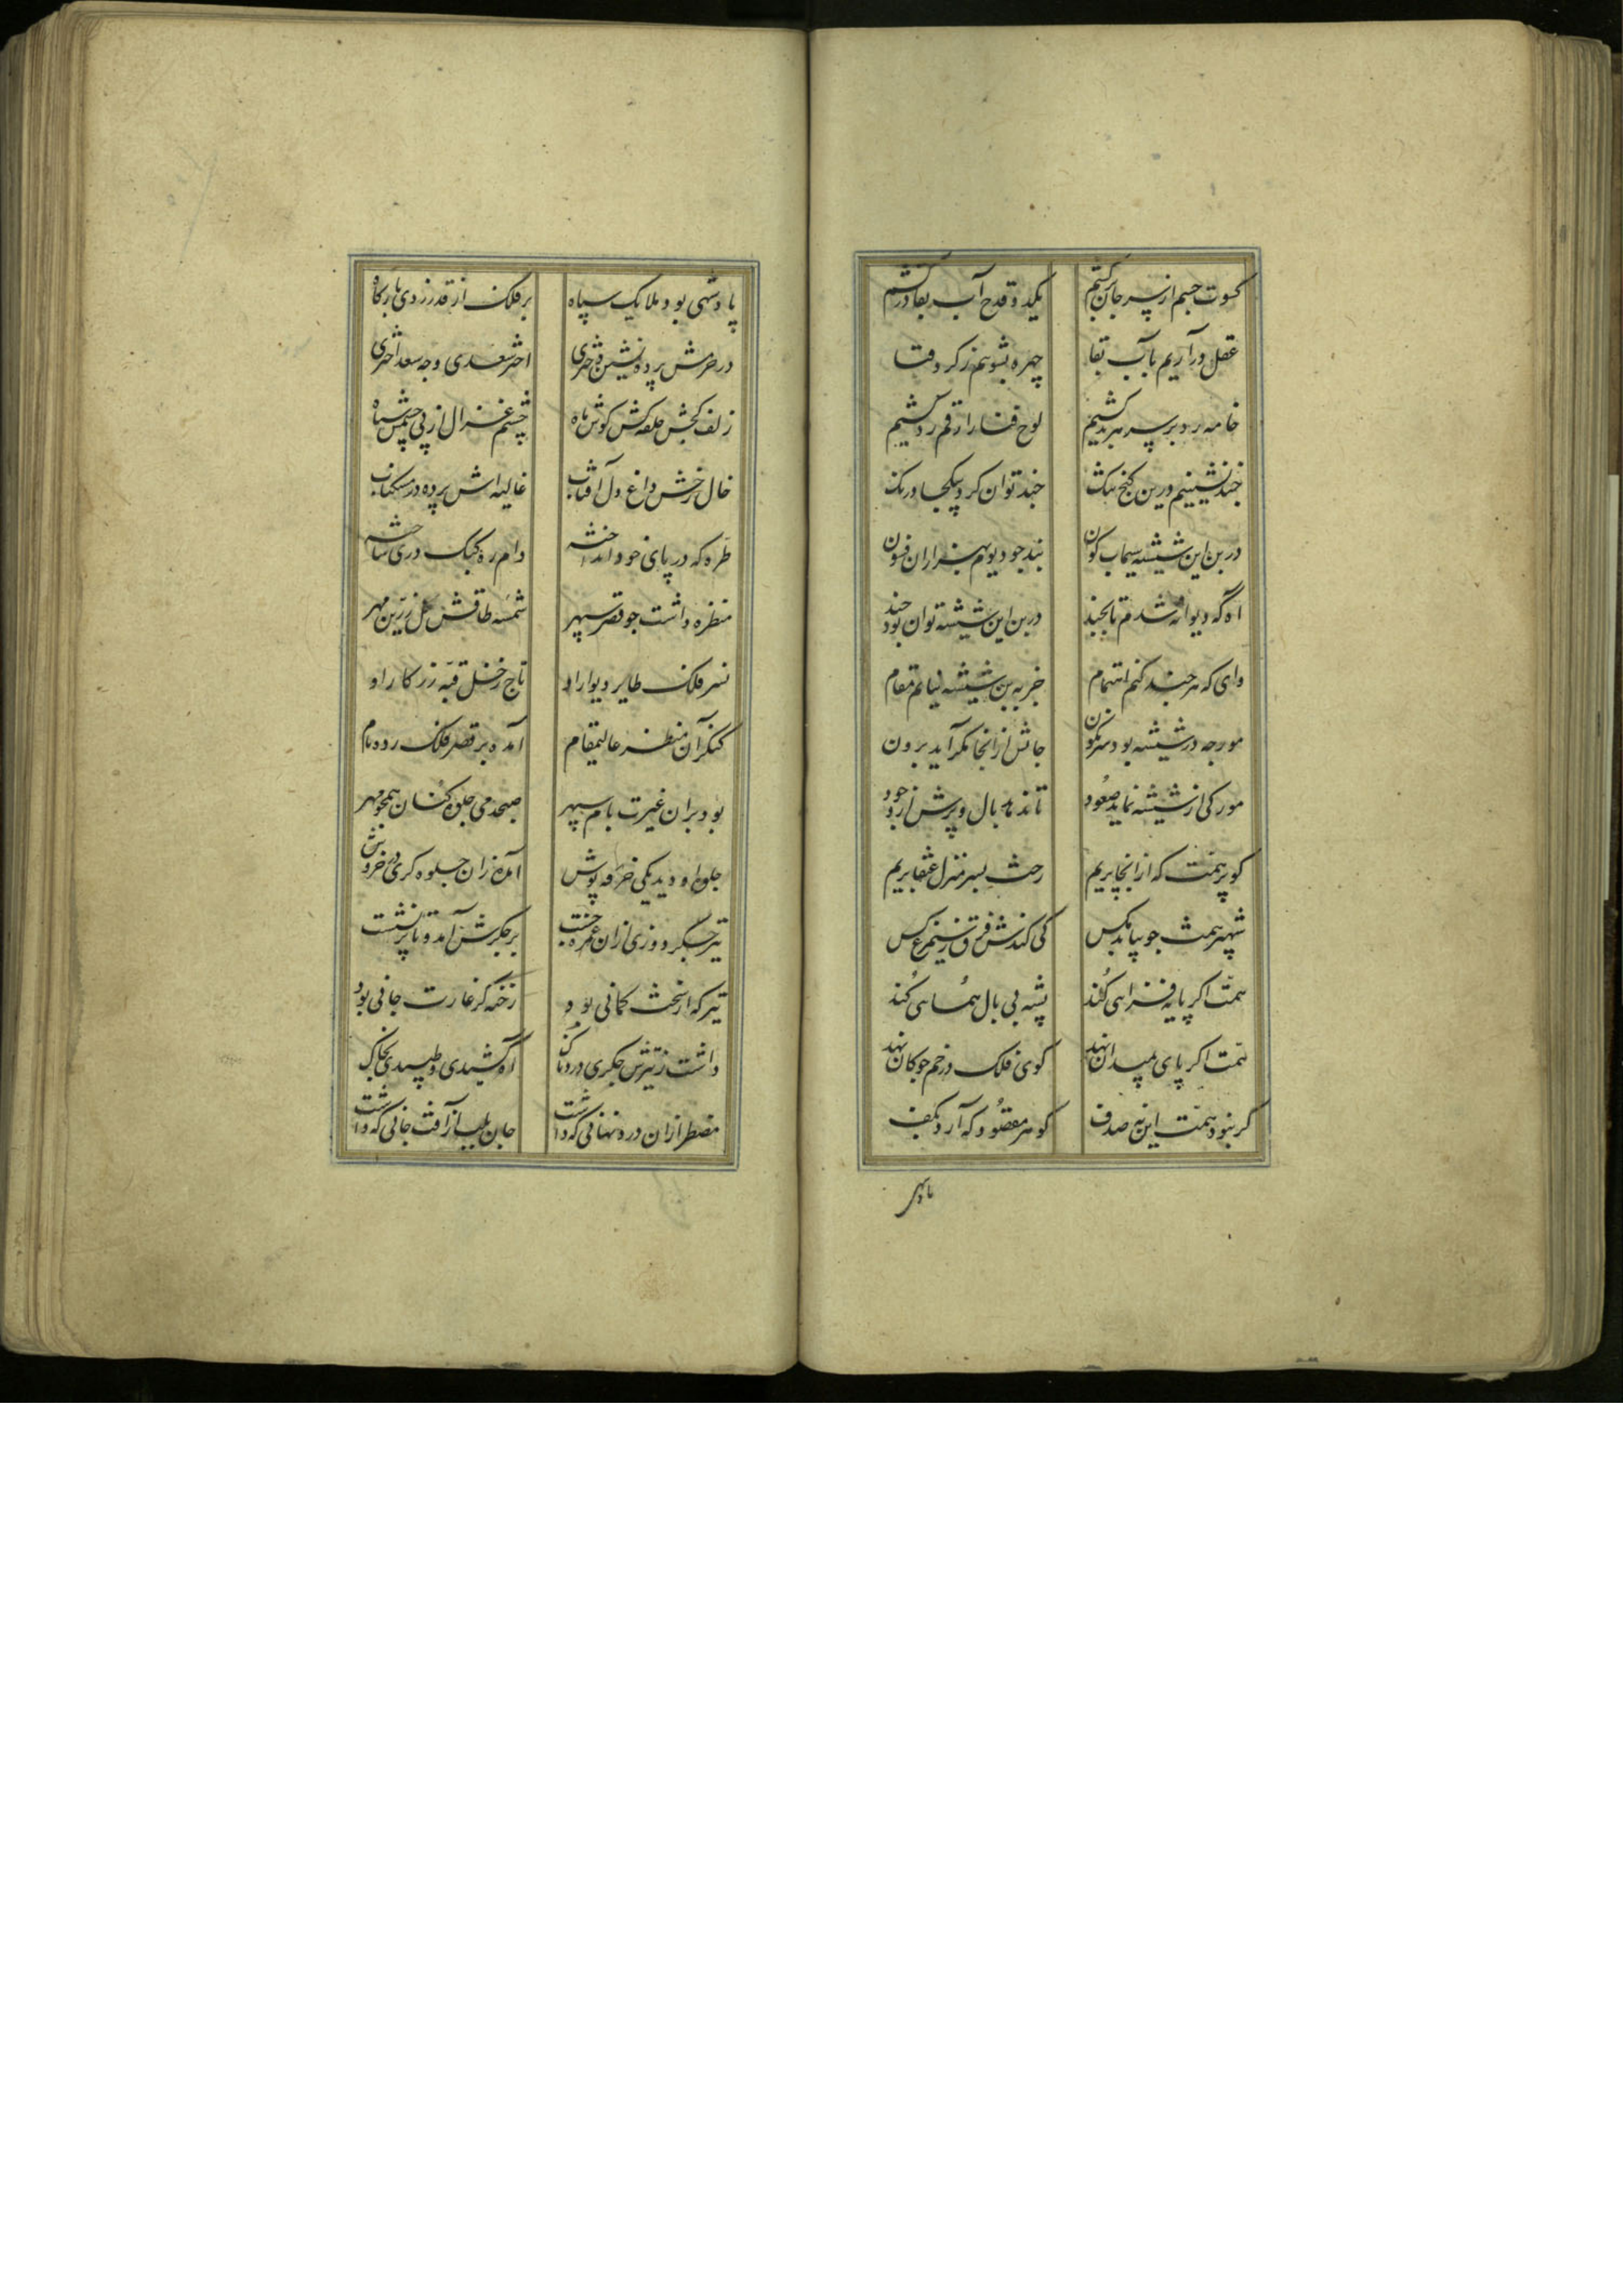 کسوت جسم از سر جان برکشیم یکدو قدح آب بقا درکشیم
غسل درآریم بآب بقا چهره بشوییم ز کرد فنا
خامه رد بر سر هر بد کشیم لوح فنا را رقم رد کشیم
چند نشینیم درین کنج تنک چند توان کرد بیکجا درنک
در بن این شیشه سیماب کون بند چو دیویم بهزاران فسون
اه که دیوانه شدم تا بچند در بن این شیشه توان بود بند
وای که هر چند کنم اهتمام جز به بن شیشه نیابم مقام
مورچه در شیشه بود سرنکون جانش از انجا مکر آید برون
مور کی از شیشه نماید صعود تا ندمد بال و پرش از وجود
کو پر همت که از انجا پریم رخت بسر منزل عنقا بریم
شهپر همت چو بیابد مکس کی کندش فرق ز سیمرغ کس
همت اکر پایه فزاهی کند پشه بی بال همایی کند
همت اکر پای بمیدان نهد کوی فلک در خم چوکان نهد
کر نبود همت این نه صدف کوهر مقصود که آرد بکف
پادشهی
پادشهی بود ملایک سپاه بر فلک از قدر زدی بارکاه
در حرمش پرده نشین دختری اختر سعدی و چه سعد اختری
زلف کجش حلقه کش کوش ماه چشم غزال از پی چشمش سیاه
خال رخش داغ دل آفتاب غالیه اش پرده در مشکناب
طره که در پای خود انداخته دام ره کبک دری ساخته
منظره داشت چو قصر سپهر شمسه طاقش کل زرین مهر
نسر فلک طایر دیوار او تاج زحل قبه زرکار او
کنکر آن منظر عالیمقام آمده بر قصر فلک رده دام
بود بر ان غیرت بام سپهر صبحدمی جلوه کنان همچو مهر
جلوه او دید یکی خرقه پوش آمد از ان جلوه کری در خروش
تیر جکر دوزی از ان غمزه جست بر جکرش آمد و تا پر نشست
تیر که از سخت کمانی بود زخمه کر غارت جانی بود
داشت ز تیرش جکری دردناک اه کشیدی و طپیدی بخاک
مضطر از ان درد نهانی که داشت جان بلب از آفت جانی که داشت